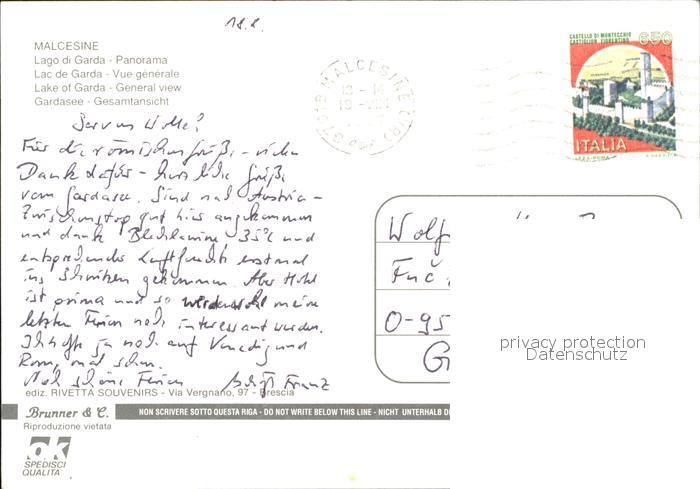 18.8.
MALCESINE
Lago di Garda - Panorama
Lac de Garda - Vue générale
Lake of Garda - General view
Gardasee - Gesamtansicht
CASTELLO DI MONTECCHIO
CASTIGLION FIORENTINO
650
ITALIA
MALCESINE (VR)
Servus Wolle!
Für die römischen Grüße - vielen
Dank dafür - herzliche Grüße
vom Gardasee. Sind nach Austria -
Zwischenstop gut hier angekommen
und dank Blechlawine, 35°C und
entsprechender Luftfeuchte erstmal
ins Schwitzen gekommen. Aber Hotel
ist prima und so werden wohl meine
letzten Ferien noch interessant werden.
Ich hoffe ja noch auf Venedig und
Rom, mal schau.
Noch schöne Ferien
Franz
Wolf
Fuč
O-95
G
privacy protection
Datenschutz
ediz. RIVETTA SOUVENIRS - Via Vergnano, 97 - Brescia
Brunner & C.
NON SCRIVERE SOTTO QUESTA RIGA - DO NOT WRITE BELOW THIS LINE - NICHT UNTERHALB D
Riproduzione vietata
ok
SPEDISCI
QUALITÀ